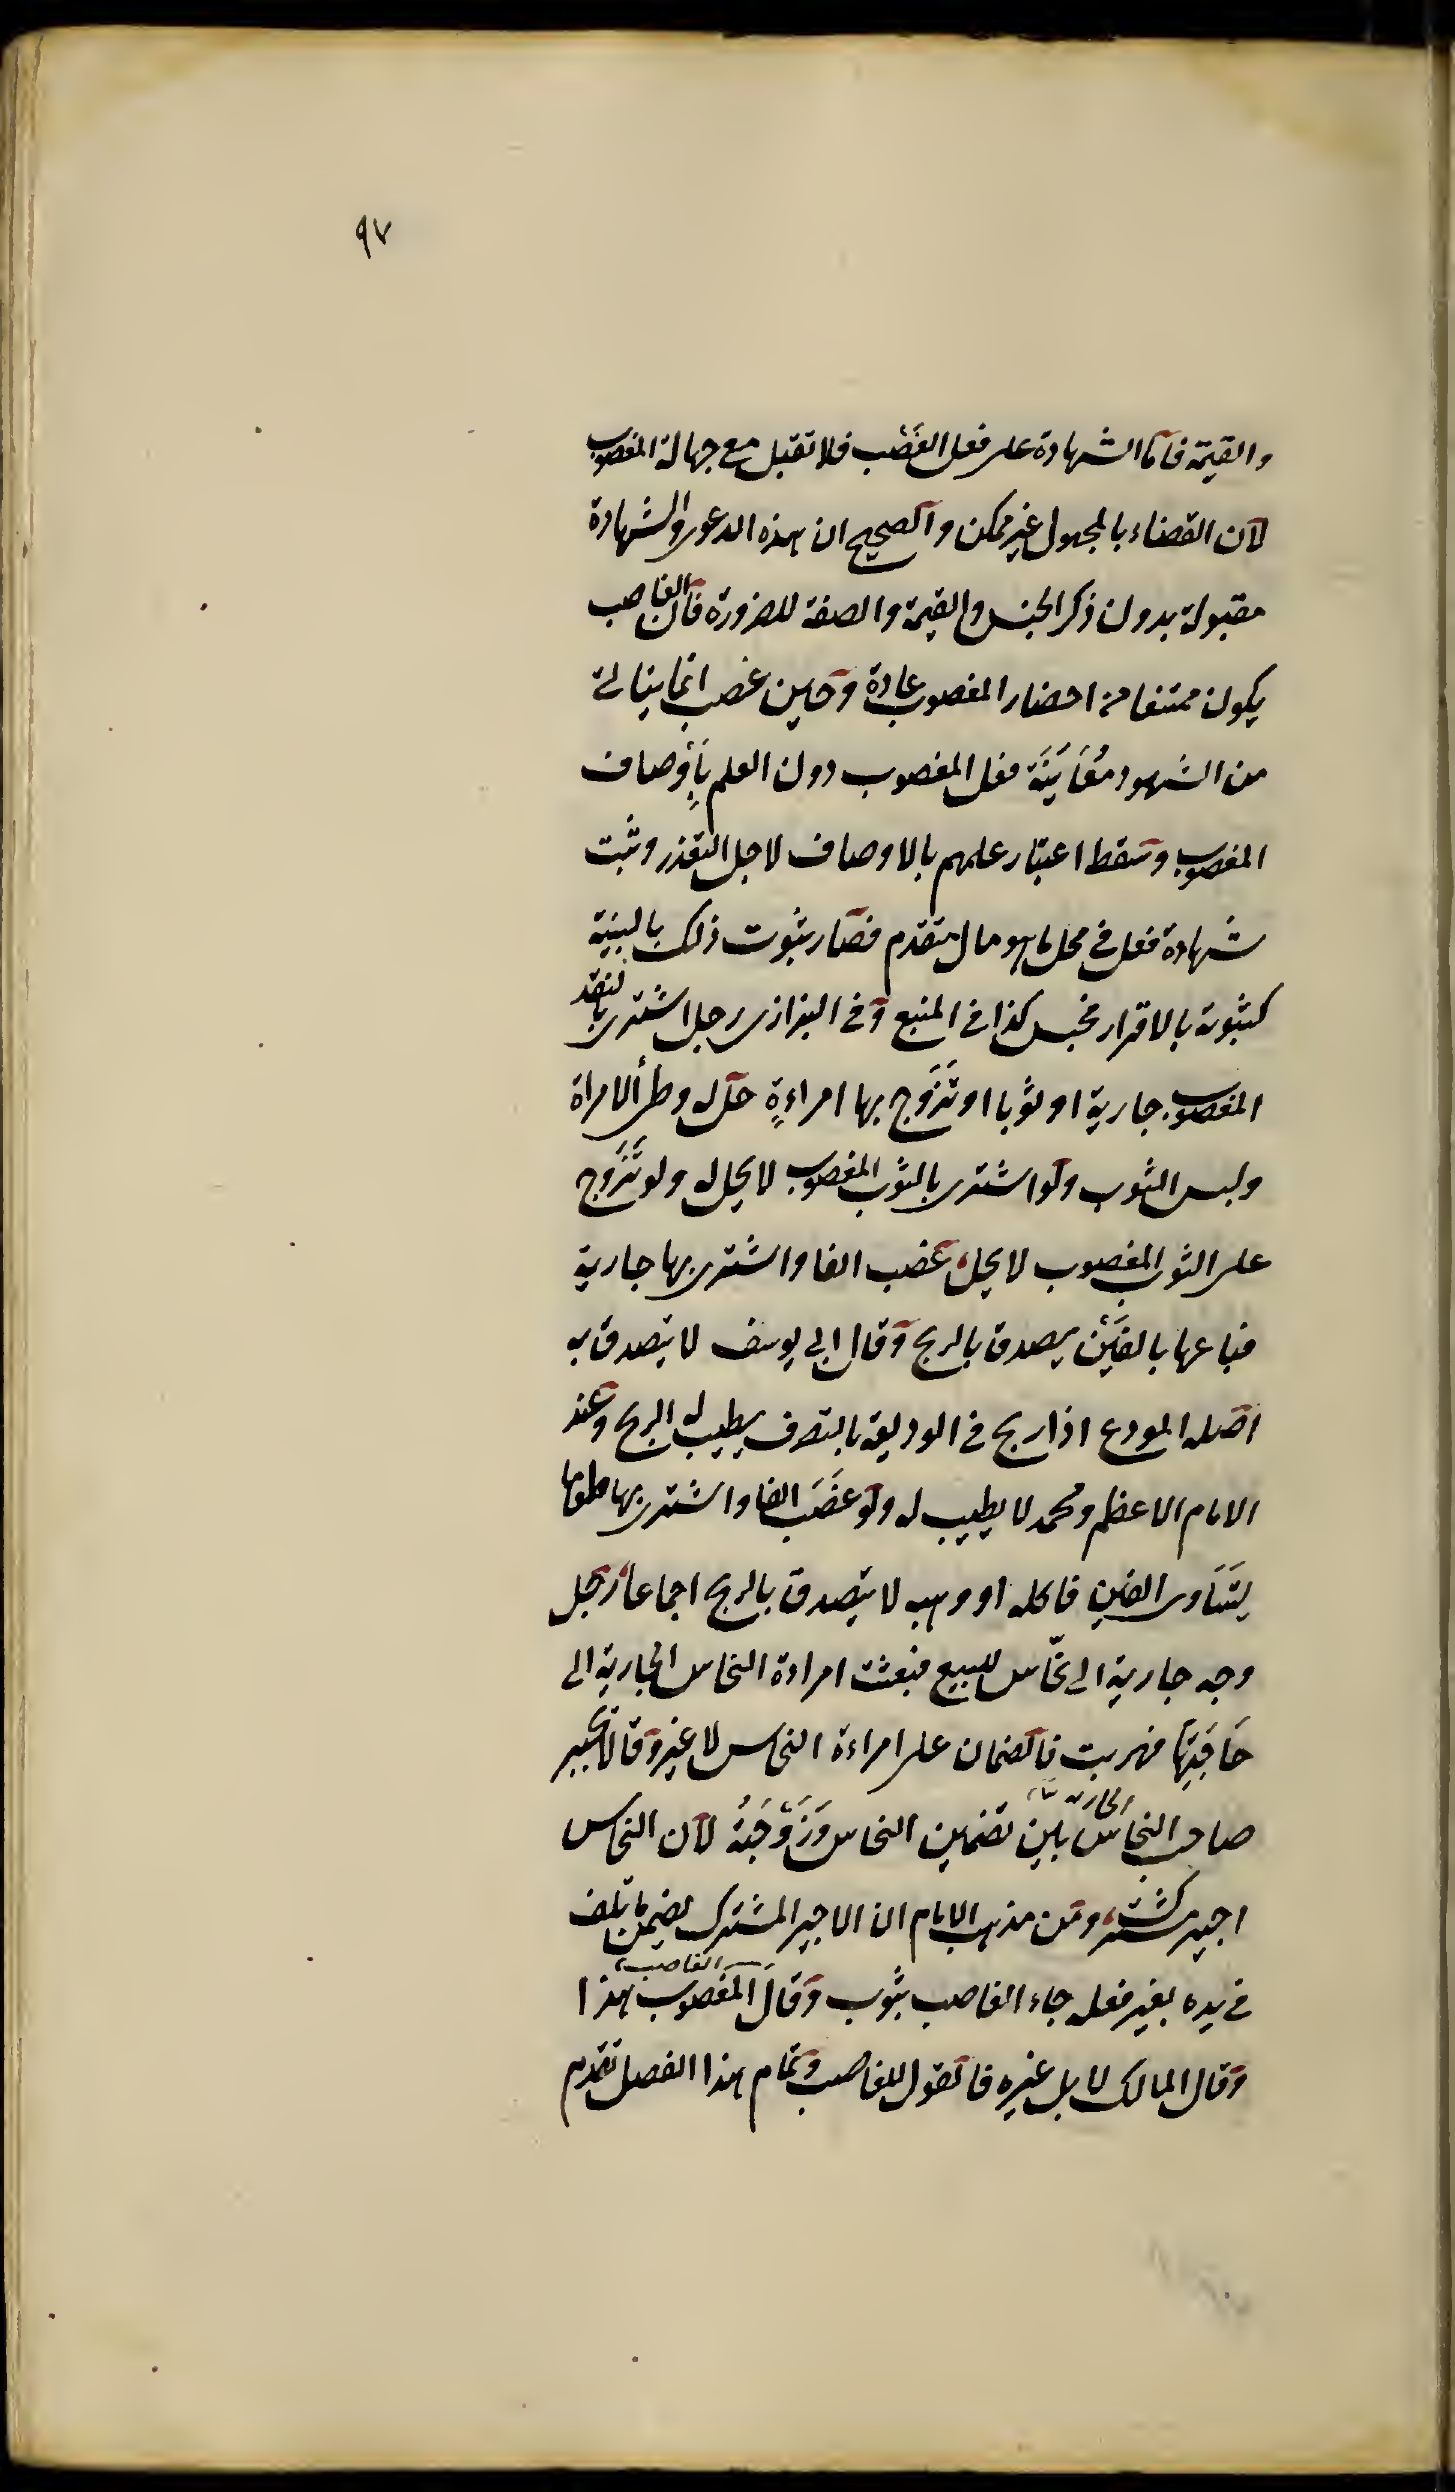 ٩٧
والقيمة فاما الشهادة على فعل الغَصْب فلا تقبل مع جهالة المغصوب
لان القضاء بالمجهول غير ممكن والصحيح ان هذه الدعوى والشهادة
مقبولة بدون ذكر الجنس والقيمة والصفة للضرورة فان الغاصب
يكون ممتنعا من احضار المغصوب عادة وحين غصب انما يتاتى
من الشهود مُعَايَنَة فعل المغصوب دون العلم بِأَوْصاف
المغصوب وسقط اعتبار علمهم بالاوصاف لاجل التعذر وثبت
شهادة فعل في محل ما هو مال متقدم فصار ثبوت ذلك بالبينة
كثبوته بالاقرار فحبس كذا في المنبع وفي البزازى رجل اشترى بالنقد
المغصوب جارية او ثوبا او تَزَوَّج بها امراءةٍ حل له وطئ الامراة
ولبس الثوب ولو اشترى بالثوب المغصوب لا يحل له ولو تَزَوَّج
على الثوب المغصوب لا يحل، غصب الفا واشترى بها جارية
فباعها بالفَيْن يصدق بالربح وقال ابي يوسف لا يتصدق به
اصله المودع اذا ربح في الوديعة بالتصرف يطيب له الربح وعند
الامام الاعظم ومحمد لا يطيب له ولو غَصَبَ الفا واشترى بها طعاما
يتَسَاوى الفين فاكله او وهبه لا يتصدق بالربح اجماعا، رجل
وجه جارية الى نخّاس للبيع فبعثت امراءة النخاس الجارية الى
حَاجَتِها فهربت فالضمان على امراءة النخاس لا غير وقالا يخير
صاحب النخاس الجارية بين تضمين النخاس وَزَوْجَتُه لان النخاس
اجير مشترك، ومن مذهب الامام ان الاجير المشترك يضمن ما تلف
في يده بغير فعله جاء الغاصب بثوب وقال الغاصب المغصوب هذا
وقال المالك لا بل غيره فالقول للغاصب وتمام هذا الفصل تقدم